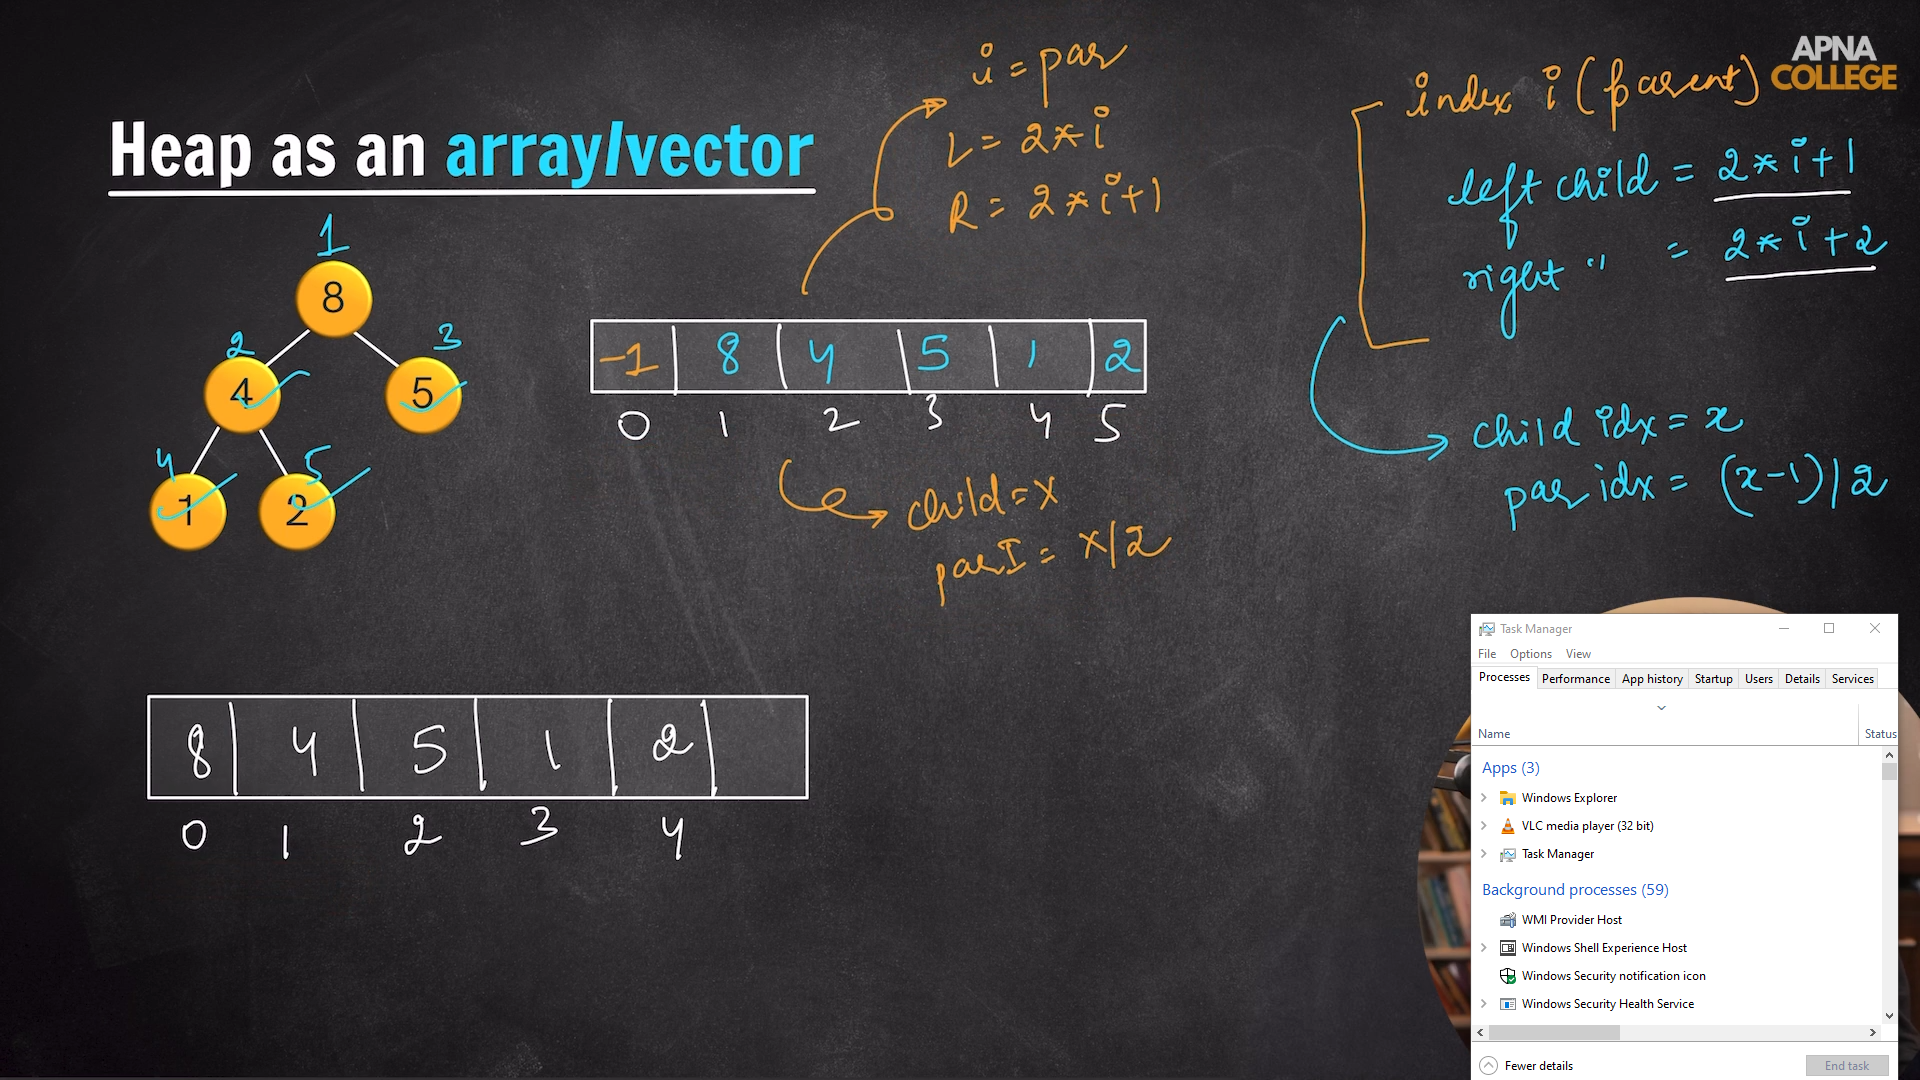 APNA
COLLEGE
Heap as an array/vector
i = par
L = 2*i
R = 2*i+1
index i (parent)
left child = 2*i+1
right " = 2*i+2
1
8
2
3
4
5
4
5
1
2
-1 8 4 5 1 2
0 1 2 3 4 5
child = x
parI = x/2
child idx = x
par idx = (x-1)/2
8 4 5 1 2
0 1 2 3 4
Task Manager
File Options View
Processes Performance App history Startup Users Details Services
Name Status
Apps (3)
Windows Explorer
VLC media player (32 bit)
Task Manager
Background processes (59)
WMI Provider Host
Windows Shell Experience Host
Windows Security notification icon
Windows Security Health Service
Fewer details End task